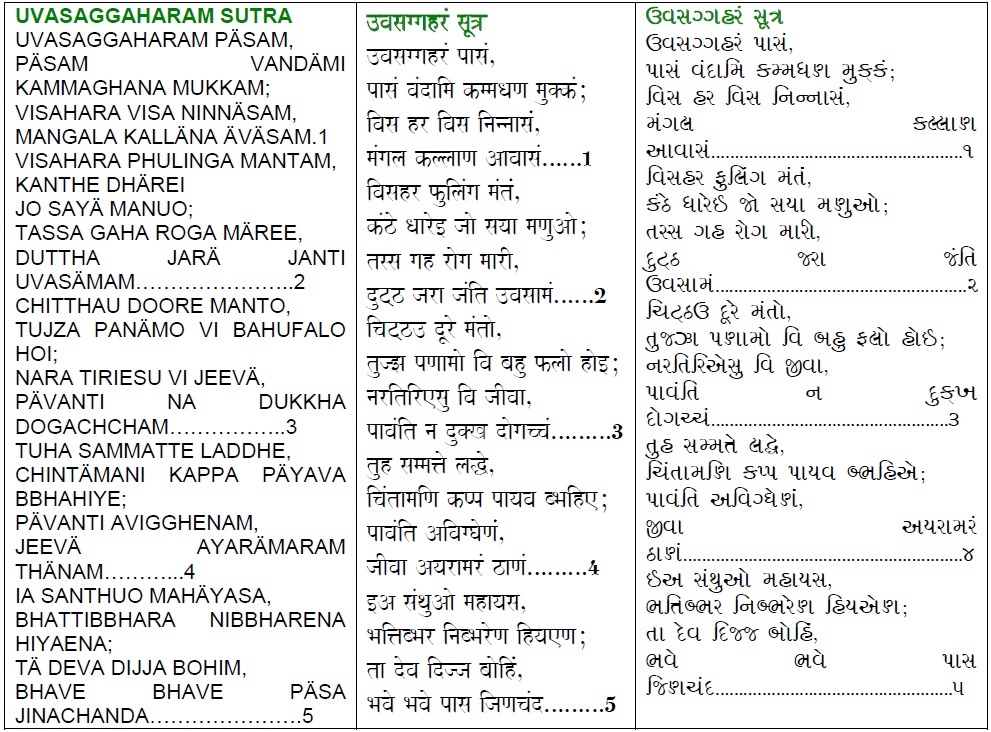 UVASAGGAHARAM SUTRA
UVASAGGAHARAM PÄSAM,
PÄSAM VANDÄMI
KAMMAGHANA MUKKAM;
VISAHARA VISA NINNÄSAM,
MANGALA KALLÄNA ÄVÄSAM.1
VISAHARA PHULINGA MANTAM,
KANTHE DHÄREI
JO SAYÄ MANUO;
TASSA GAHA ROGA MÄREE,
DUTTHA JARÄ JANTI
UVASÄMAM…………………..2
CHITTHAU DOORE MANTO,
TUJZA PANÄMO VI BAHUFALO
HOI;
NARA TIRIESU VI JEEVÄ,
PÄVANTI NA DUKKHA
DOGACHCHAM……………..3
TUHA SAMMATTE LADDHE,
CHINTÄMANI KAPPA PÄYAVA
BBHAHIYE;
PÄVANTI AVIGGHENAM,
JEEVÄ AYARÄMARAM
THÄNAM………...4
IA SANTHUO MAHÄYASA,
BHATTIBBHARA NIBBHARENA
HIYAENA;
TÄ DEVA DIJJA BOHIM,
BHAVE BHAVE PÄSA
JINACHANDA………………….5
उवसग्गहरं सूत्र
उवसग्गहरं पासं,
पासं वंदामि कम्मधण मुक्कं;
विस हर विस निन्नासं,
मंगल कल्लाण आवासं......1
विसहर फुलिंग मंतं,
कंटे धारेइ जो सया मणुओ;
तस्स गह रोग मारी,
दुट्ठ जरा जंति उवसामं......2
चिट्ठउ दूरे मंतो,
तुज्झ पणामो वि बहु फलो होइ;
नरतिरिएसु वि जीवा,
पावंति न दुक्ख दोगच्चं.........3
तुह सम्मत्ते लद्धे,
चिंतामणि कप्प पायव ब्भहिए;
पावंति अविग्घेणं,
जीवा अयरामरं ठाणं.........4
इअ संथुओ महायस,
भत्तिब्भर निब्भरेण हियएण;
ता देव दिज्ज बोहिं,
भवे भवे पास जिणचंद.........5
ઉવસગ્ગહરં સૂત્ર
ઉવસગ્ગહરં પાસં,
પાસં વંદામિ કમ્મધણ મુક્કં;
વિસ હર વિસ નિન્નાસં,
મંગલ કલ્લાણ
આવાસં................................................૧
વિસહર ફુલિંગ મંતં,
કંઠે ધારેઈ જો સયા મણુઓ;
તસ્સ ગહ રોગ મારી,
દુટ્ઠ જરા જંતિ
ઉવસામં................................................૨
ચિટ્ઠઉ દૂરે મંતો,
તુજ્ઝ પણામો વિ બહુ ફલો હોઈ;
નરતિરિએસુ વિ જીવા,
પાવંતિ ન દુક્ખ
દોગચ્ચં..............................................૩
તુહ સમ્મત્તે લદ્ધે,
ચિંતામણિ કપ્પ પાયવ બ્ભહિએ;
પાવંતિ અવિગ્ઘેણં,
જીવા અયરામરં
ઠાણં....................................................૪
ઈઅ સંથુઓ મહાયસ,
ભત્તિબ્ભર નિબ્ભરેણ હિયએણ;
તા દેવ દિજ્જ બોહિં,
ભવે ભવે પાસ
જિણચંદ.............................................૫